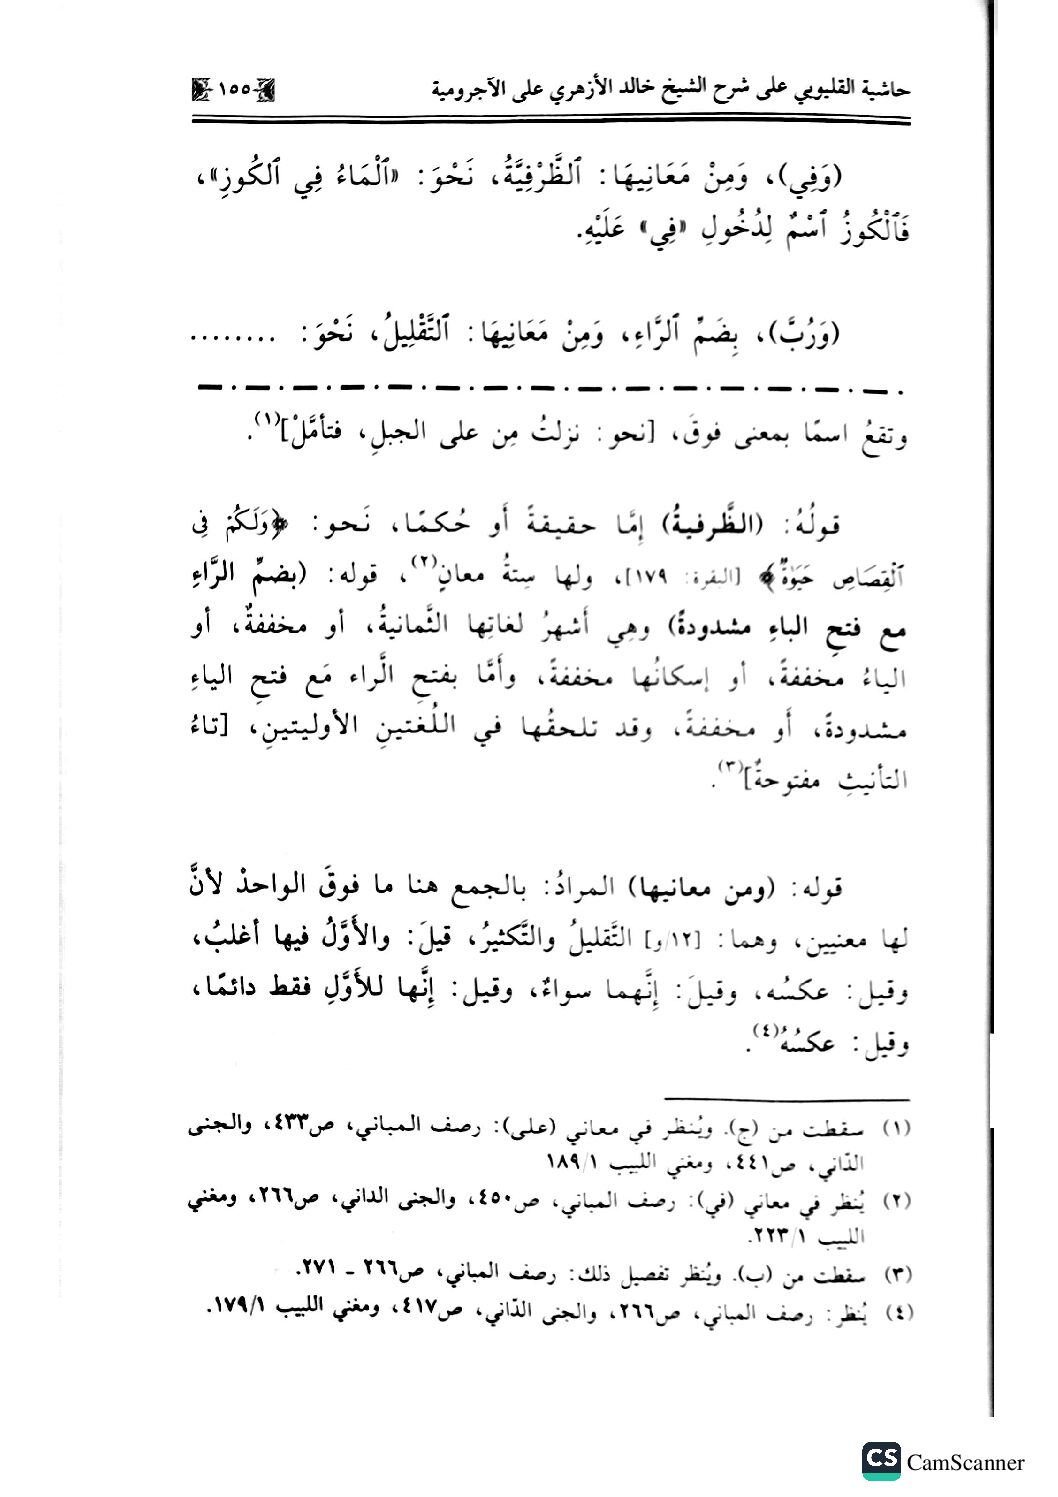 حاشية القليوبي على شرح الشيخ خالد الأزهري على الآجرومية ١٥٥
(وَفِي)، وَمِنْ مَعَانِيهَا: ٱلظَّرْفِيَّةُ، نَحْوَ: «ٱلْمَاءُ فِي ٱلكُوزِ»،
فَٱلْكُوزُ ٱسْمٌ لِدُخُولِ «فِي» عَلَيْهِ.
(وَرُبَّ)، بِضَمِّ ٱلرَّاءِ، وَمِنْ مَعَانِيهَا: ٱلتَّقْلِيلُ، نَحْوَ: ........
وتقعُ اسمًا بمعنى فوقَ، [نحو: نزلتُ مِن على الجبلِ، فتأمَّلْ](١).
قولُهُ: (الظَّرفيةُ) إِمَّا حقيقةً أَو حُكمًا، نَحو: ﴿وَلَكُمْ فِي
ٱلْقِصَاصِ حَيَوٰةٌ﴾ [البقرة: ١٧٩]، ولها سِتةُ معانٍ(٢)، قوله: (بضمِّ الرَّاءِ
مع فتحِ الباءِ مشدودةً) وهِي أَشهرُ لغاتِها الثَّمانيةُ، أو مخففةٌ، أو
الباءُ مخففةً، أو إسكانُها مخففةً، وأمَّا بفتحِ الَّراء مَع فتحِ الياءِ
مشدودةً، أَو مخففةً، وقد تلحقُها في اللُغتينِ الأوليتينِ، [تاءُ
التأنيثِ مفتوحةٌ](٣).
قوله: (ومن معانيها) المرادُ: بالجمع هنا ما فوقَ الواحدْ لأنَّ
لها معنيين، وهما: [١٢/و] التَّقليلُ والتَّكثيرُ، قيلَ: والأَوَّلُ فيها أغلبُ،
وقيل: عكسُه، وقيلَ: إِنَّهما سواءٌ، وقيل: إِنَّها للأَوَّلِ فقط دائمًا،
وقيل: عكسُهُ(٤).
(١) سقطت من (ج). ويُنظر في معاني (على): رصف المباني، ص٤٣٣، والجنى
الدّاني، ص٤٤١، ومغني اللبيب ١٨٩/١
(٢) يُنظر في معاني (في): رصف المباني، ص٤٥٠، والجنى الداني، ص٢٦٦، ومغني
اللبيب ٢٢٣/١.
(٣) سقطت من (ب). ويُنظر تفصيل ذلك: رصف المباني، ص٢٦٦ ـ ٢٧١.
(٤) يُنظر: رصف المباني، ص٢٦٦، والجنى الدّاني، ص٤١٧، ومغني اللبيب ١٧٩/١.
CS CamScanner